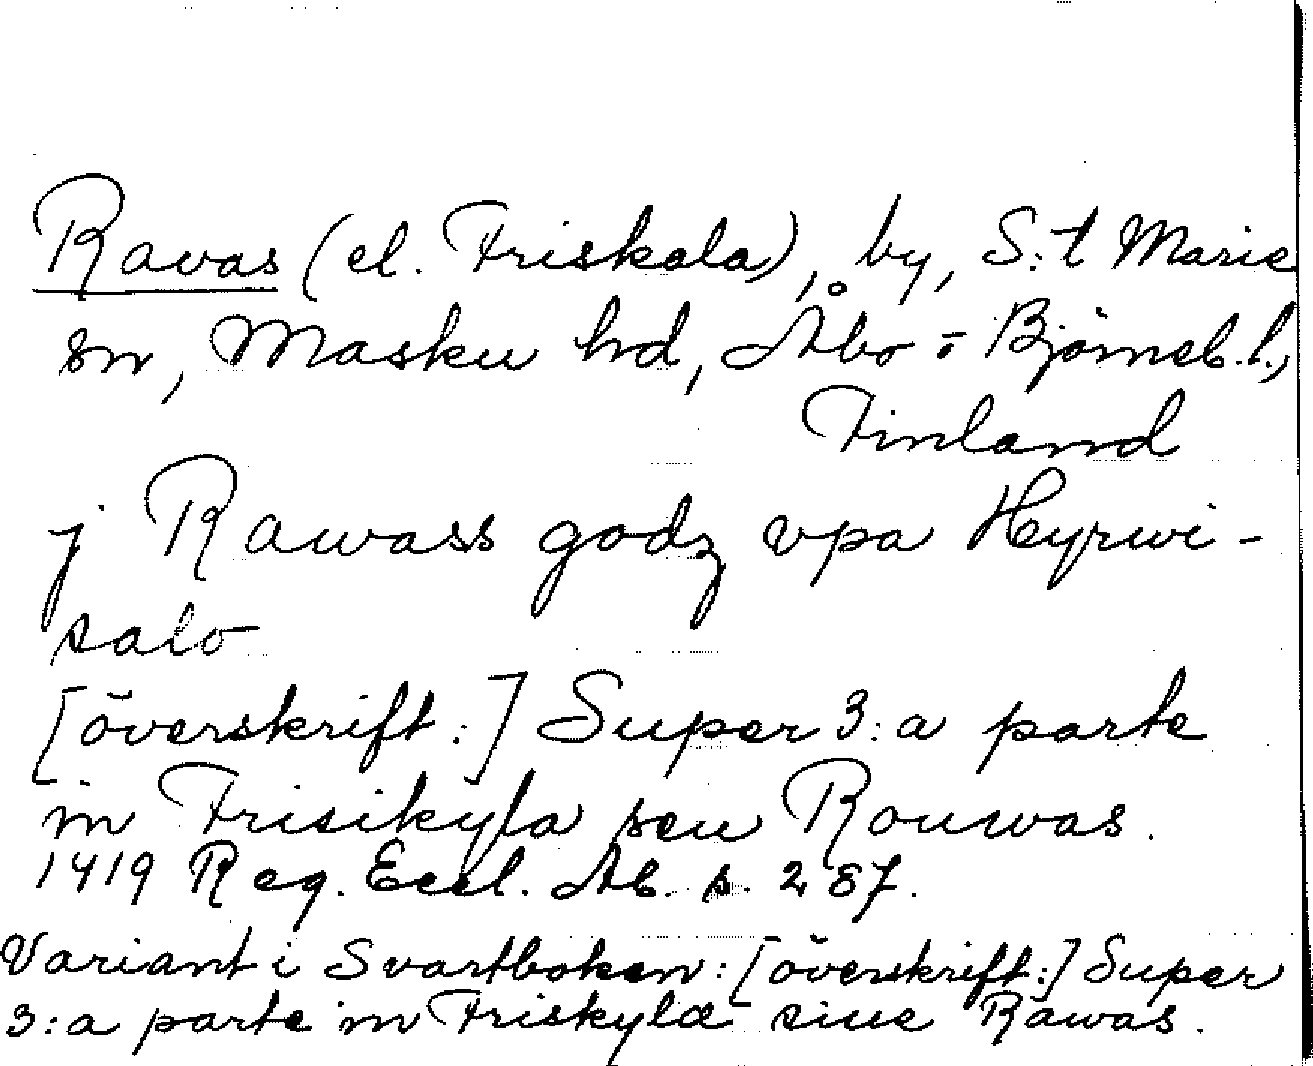 Ravas (el. Friskala), by, S:t Marie
sn, Masku hd, Åbo - Björneb. l.,
Finland
j Rawass godz vpa Hyrwi-
salo
[överskrift:] Super 3:a parte
in Frisikyla seu Rouwas.
1419 Reg. Eccl. Ab. s. 287.
Variant i Svartboken: [överskrift:] Super
3:a parte in Friskyla siue Rawas.